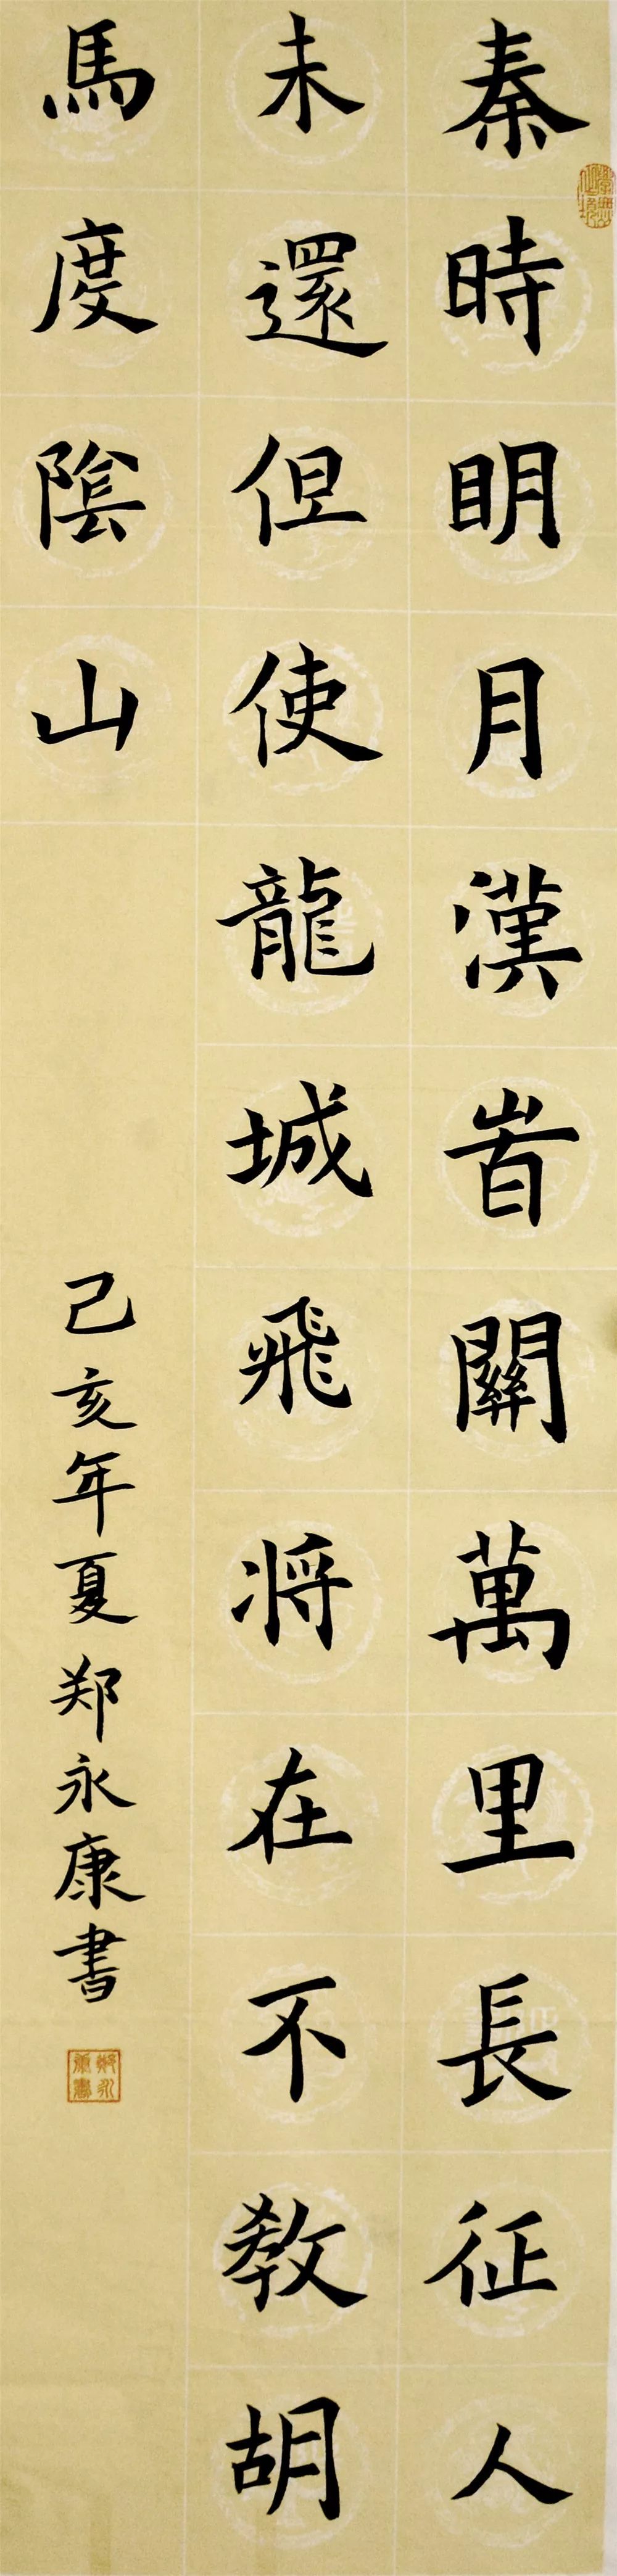 秦時明月漢時關萬里長征人
未還但使龍城飛將在不教胡
馬度陰山
己亥年夏郑永康書
鄭永康書